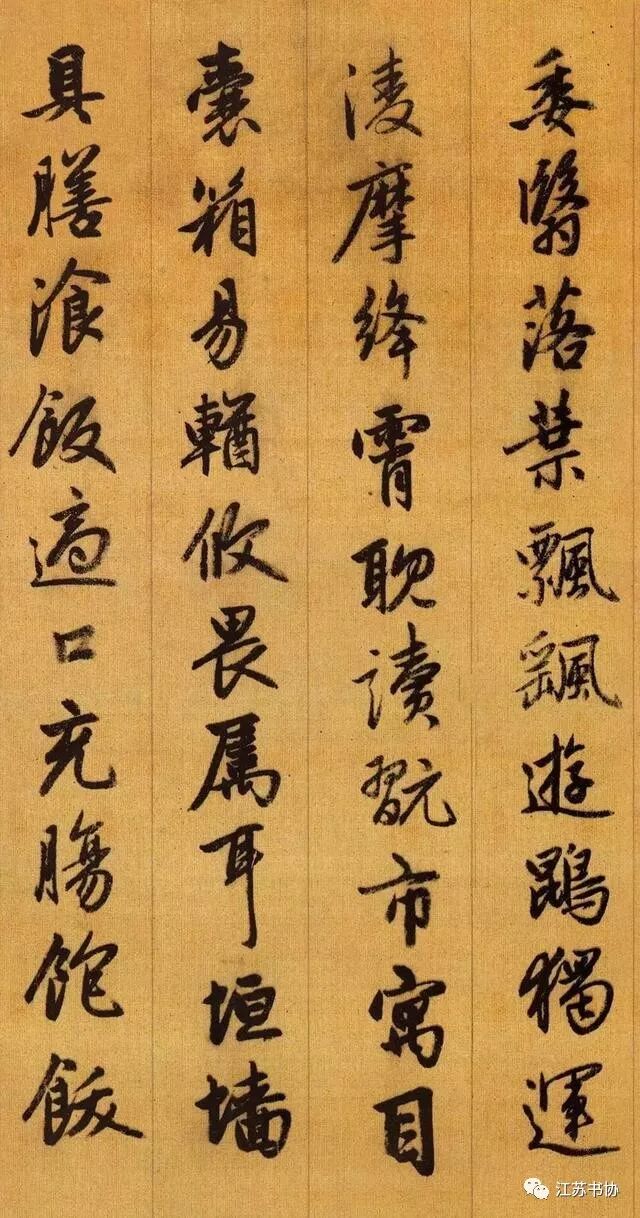 委翳落葉飄飖遊鵾獨運
淩摩絳霄耽讀翫市寓目
囊箱易輶攸畏属耳垣墻
具膳飡飯適口充膓飽飫
江苏书协